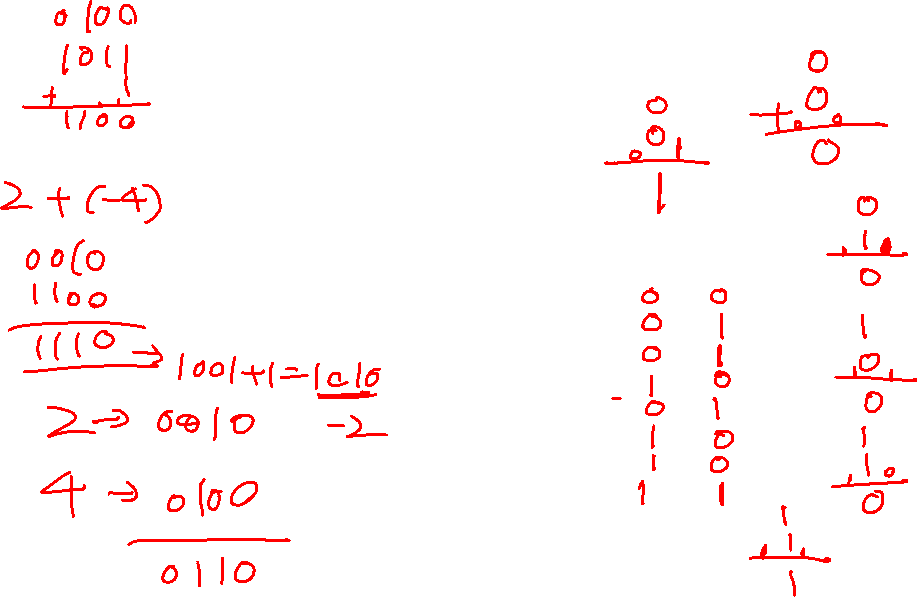 0100
1011
+ 1
1100
2 + (-4)
0010
1100
1110 → 1001+1=1010
-2
2 → 0010
4 → 0100
0110
0
0
0 1
1
0
0
+ 0 0
0
0
1
0
1
0
0
1
1
0
1
1
0 0
0 1
0 1
1 0
- 0 1
1 0
1 0
1 1